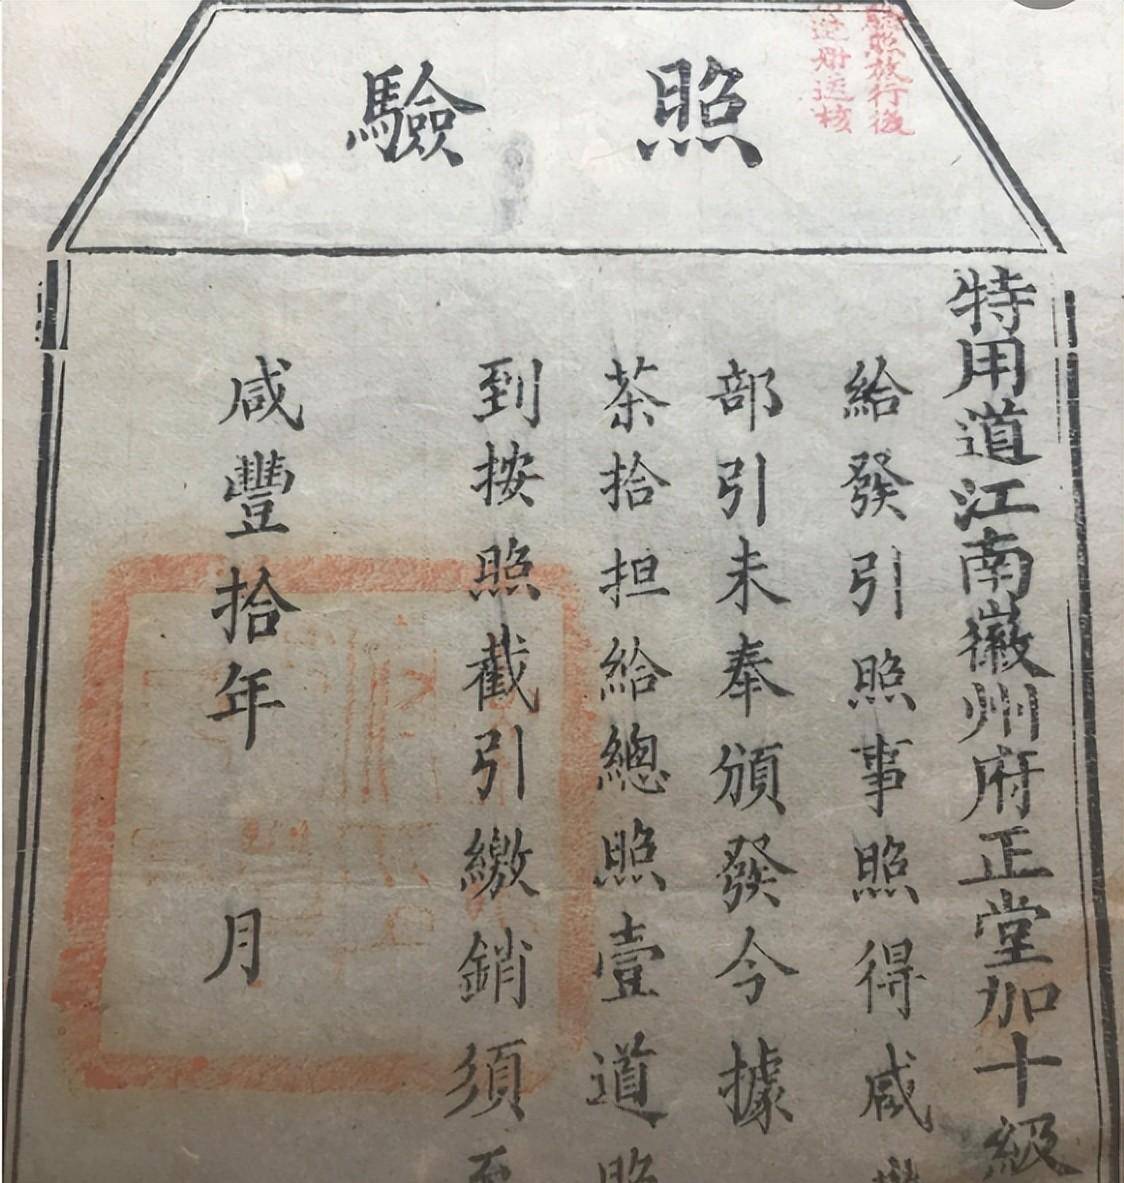 照驗
驗照放行後
造冊送核
特用道江南徽州府正堂加十級
給發引照事照得咸
部引未奉頒發今據
茶拾担給總照壹道照
到按照截引繳銷須至
咸豐拾年 月